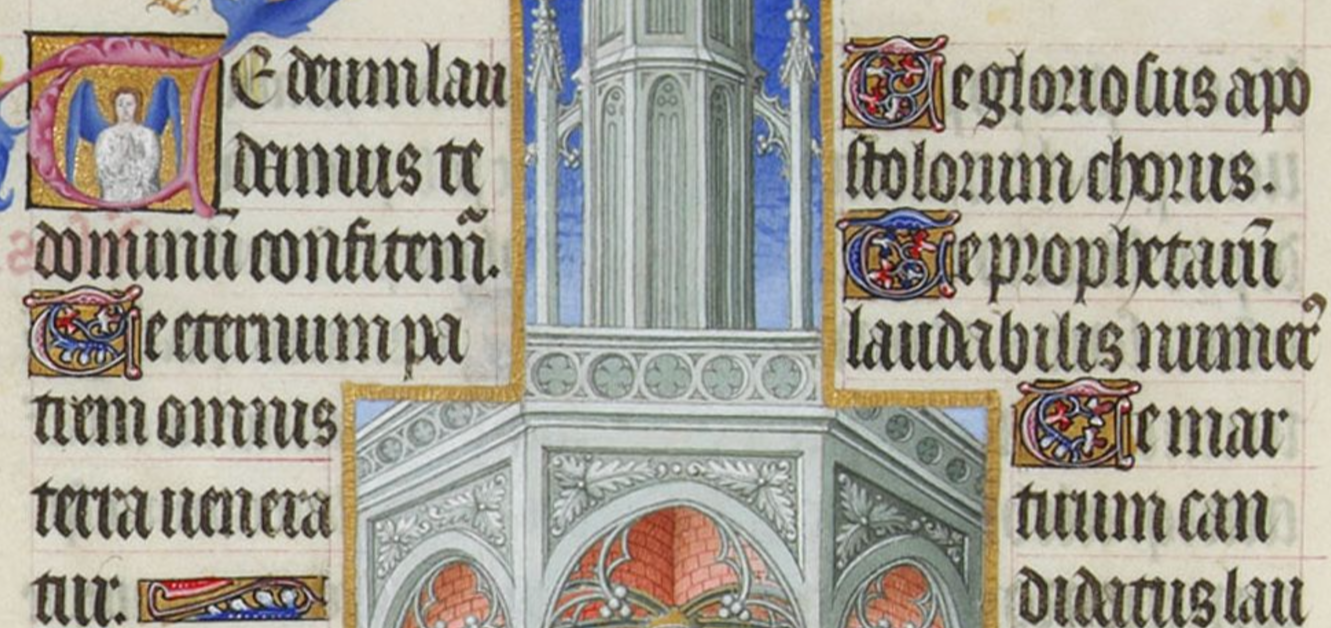 TE deum lau
damus te
dominū confitem̃.
Te eternum pa
trem omnis
terra uenera
tur.
Te gloriosus apo
stolorum chorus.
Te prophetarū
laudabilis numer᷒
Te mar
tirum can
didatus lau